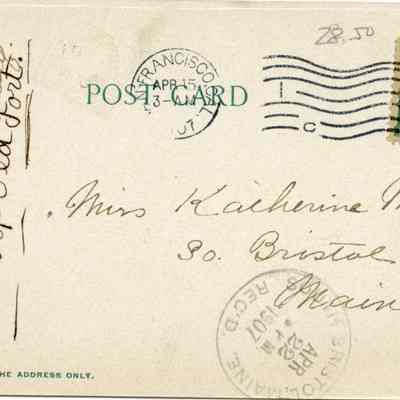 28.50
FRANCISCO
APR 15
3-AM
'07
POST CARD
C
Old Fort.
Miss Katherine M
So. Bristol
Main
BRISTOL, MAINE.
APR
22
1907
REC'D.
HE ADDRESS ONLY.